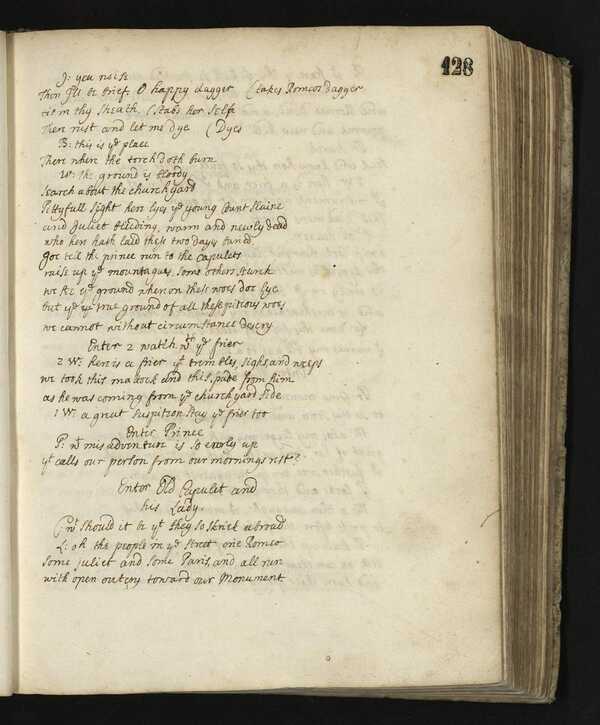 128
J: yea noise
Then I'le be brief. O happy dagger (takes Romeos dagger
rest in thy sheath (Stabs her Selfe
There rust and let me dye (Dyes
B: this is ye place
There where the torch doth burn
W: the ground is bloody
Search about the churchyard
Pittyfull Sight here lyes ye young Count Slaine
and Juliet bleeding, warm and newly dead
who here hath laid these two dayes buried.
Goe tell the prince run to the Capulets
raise up ye mountagues, some others Search
we see ye ground whereon these woes doe lye
but ye true ground of all these piteous woes
we cannot without circumstance descry
Enter 2 watch wth ye frier
2 W: here is a frier yt trembles, sighs, and weeps
we took this mattock and this spade from him
as he was coming from ye churchyard side
1 W: a great Suspition Stay ye frier too
Enter Prince
P: wt misadventure is so early up
yt calls our person from our mornings rest?
Enter Old Capulet and
his Lady.
wt should it be yt they so shriek abroad
L: oh the people in ye Street one Romeo
Some Juliet and some Paris, and all run
with open outcry toward our Monument